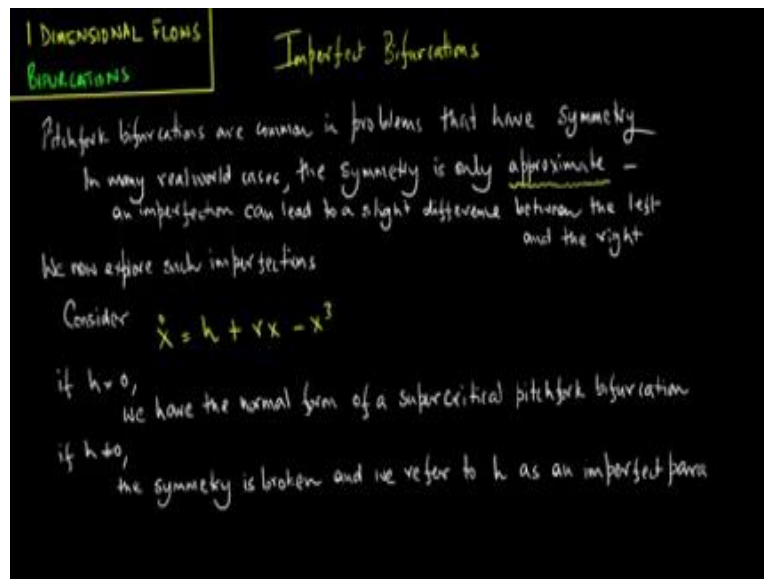 1 DIMENSIONAL FLOWS
BIFURCATIONS
Imperfect Bifurcations
Pitchfork bifurcations are common in problems that have symmetry
In many real world cases, the symmetry is only approximate –
an imperfection can lead to a slight difference between the left
and the right
We now explore such imperfections
Consider
ẋ = h + rx - x³
if h=0,
we have the normal form of a supercritical pitchfork bifurcation
if h≠0,
the symmetry is broken and we refer to h as an imperfect para